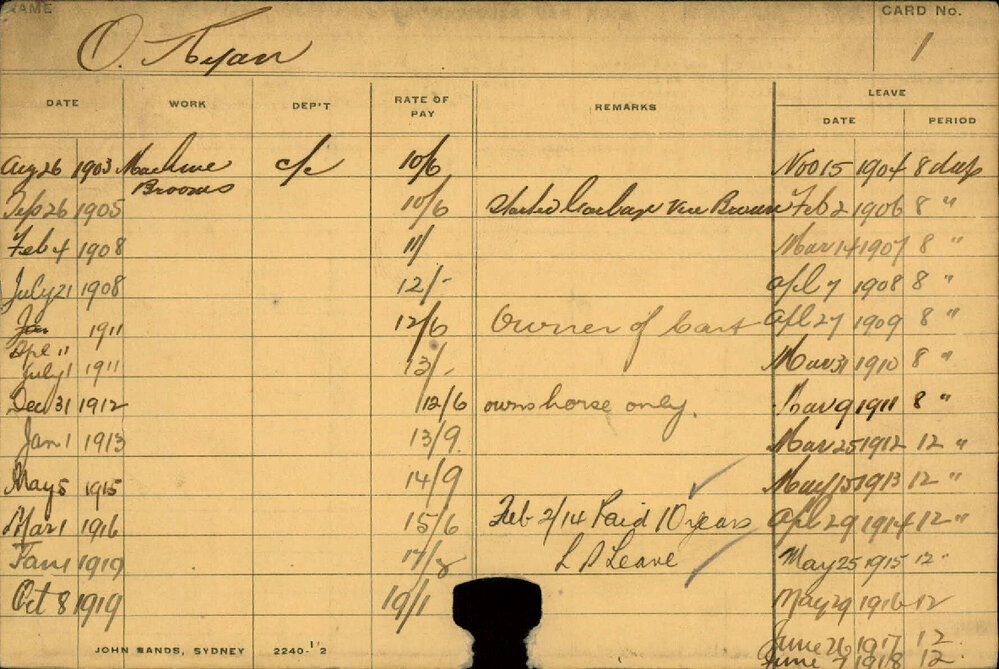 NAME CARD No.
O. Ryan 1
LEAVE
DATE WORK DEP'T RATE OF PAY REMARKS DATE PERIOD
Aug 26 1903 Machine c/c 10/6 Nov 15 1904 8 days
Brooms
Sep 26 1905 10/6 Started Garbage Vice Brown Feb 2 1906 8 "
Feb 4 1908 11/ Mar 14 1907 8 "
July 21 1908 12/- Apl 7 1908 8 "
Jan 1911 12/6 Owner of Cart Apl 27 1909 8 "
Apl 11
July 1 1911 13/- Mar 31 1910 8 "
Dec 31 1912 12/6 owns horse only. Mar 9 1911 8 "
Jan 1 1913 13/9 Mar 25 1912 12 "
May 5 1915 14/9 May 15 1913 12 "
Mar 1 1916 15/6 Feb 2/14 Paid 10 years Apl 29 1914 12 "
Jan 1 1919 17/8 L S Leave May 25 1915 12 "
Oct 8 1919 19/1 May 29 1916 12
June 26 1917 12
JOHN SANDS, SYDNEY 2240-1'2 June 7 1918 12